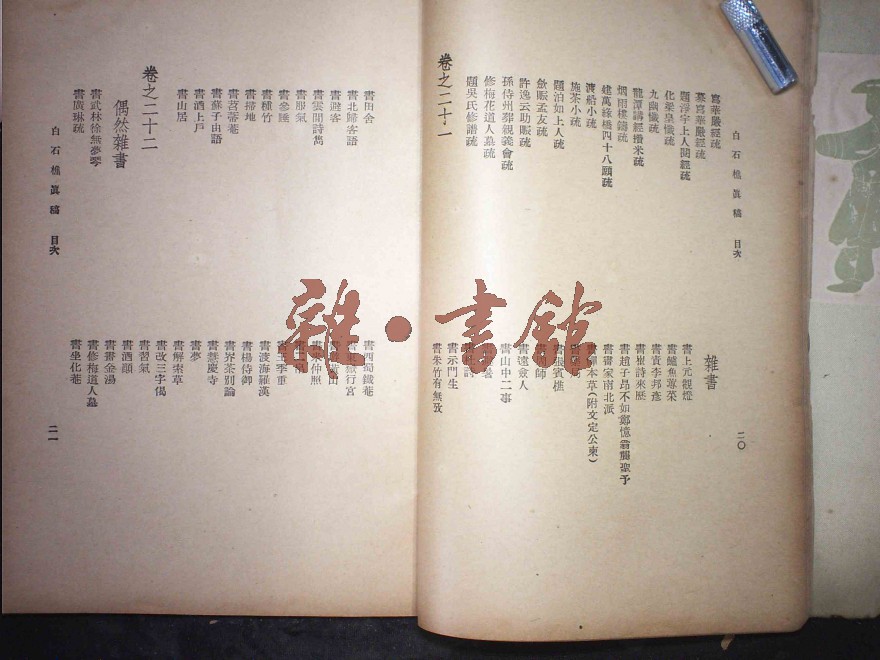 白石樵眞稿 目次
二〇
寫華嚴經疏
募寫華嚴經疏
題浮宇上人閱經疏
化梁皇懺疏
九幽懺疏
龍潭講經攢米疏
烟雨樓鑄疏
建萬綠橋四十八願疏
渡船小疏
施茶小疏
題泊如上人疏
斂賑孟友疏
許逸云助賑疏
孫侍州葬親義會疏
修梅花道人墓疏
題吳氏修譜疏
卷之二十一
雜書
書上元觀燈
書鱸魚蓴菜
書責李邦彥
書崔詩來歷
書趙子昂不如鄭憶翁龔聖予
書書家南北派
本草(附文定公柬)
賓樵
師
書遠僉人
書山中二事
書示門生
書朱竹有無攷
書田舍
書北歸客語
書避客
書雲間詩雋
書服氣
書參睡
書種竹
書掃地
書苕帚菴
書蘇子由語
書酒上戶
書山居
書西蜀鐵菴
嶽行宮
山
宋仲熙
王季重
書渡海羅漢
書楊侍御
書界茶別論
書慧慶寺
書夢
書解索草
書改三字偈
書習氣
書酒顚
書書金湯
書修梅道人墓
書坐化菴
卷之二十二
偶然雜書
書武林徐無夢琴
書廣琳疏
白石樵眞稿 目次
二一
雜·書館